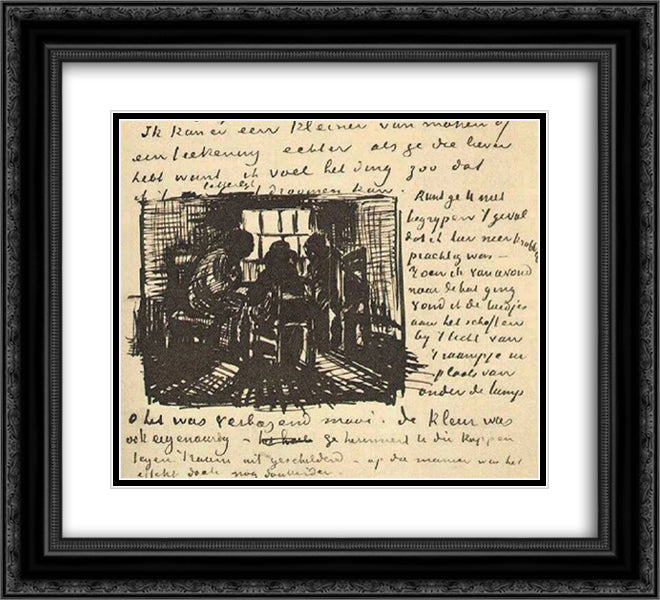 Ik kan er een kleiner van maken of
een teekening echter als ge die liever
hebt want ik voel het ding zoo dat
ik 't letterlijk droomen kan.
Kunt ge U niet
begrypen 't geval
dat ik hier neerkrabbel
prachtig was —
Toen ik van avond
naar de hut ging
vond ik de luidjes
aan het schoften
by 't licht van
't raampje in
plaats van
onder de lamp
o het was verbazend mooi. de kleur was
ook eigenaardig – ge herinnert U die koppen
tegen 't raam uit geschilderd – op die manier was het
effekt doch nog donkerder.